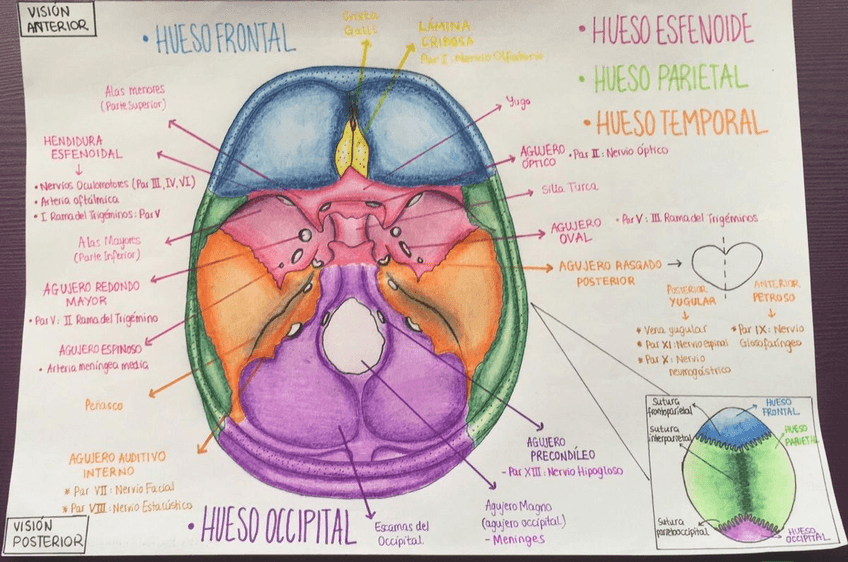 VISIÓN
ANTERIOR
• HUESO FRONTAL
Crista
Galli
LÁMINA
CRIBOSA
Par I: Nervio Olfatorio
• HUESO ESFENOIDE
• HUESO PARIETAL
• HUESO TEMPORAL
Alas menores
(Parte Superior)
HENDIDURA
ESFENOIDAL
• Nervios Oculomotores (Par III, IV, VI)
• Arteria oftálmica
• I Rama del Trigéminos: Par V
Alas Mayores
(Parte Inferior)
AGUJERO REDONDO
MAYOR
• Par V: II Rama del Trigémino
AGUJERO ESPINOSO
• Arteria meníngea media
Peñasco
AGUJERO AUDITIVO
INTERNO
* Par VII: Nervio Facial
* Par VIII: Nervio Estatústico
Yugo
AGUJERO
ÓPTICO
• Par II: Nervio Óptico
Silla Turca
AGUJERO
OVAL
- Par V: III Rama del Trigéminos
AGUJERO RASGADO
POSTERIOR
POSTERIOR
YUGULAR
* Vena yugular
* Par XI: Nervio espinal
* Par X: Nervio
neumogástrico
ANTERIOR
PETROSO
* Par IX: Nervio
Glosofaríngeo
AGUJERO
PRECONDÍLEO
- Par XIII: Nervio Hipogloso
Agujero Magno
(agujero occipital)
- Meninges
Escamas del
Occipital
• HUESO OCCIPITAL
VISIÓN
POSTERIOR
Sutura
frontoparietal
Sutura
interparietal
Sutura
parietooccipital
HUESO
FRONTAL
HUESO
PARIETAL
HUESO
OCCIPITAL